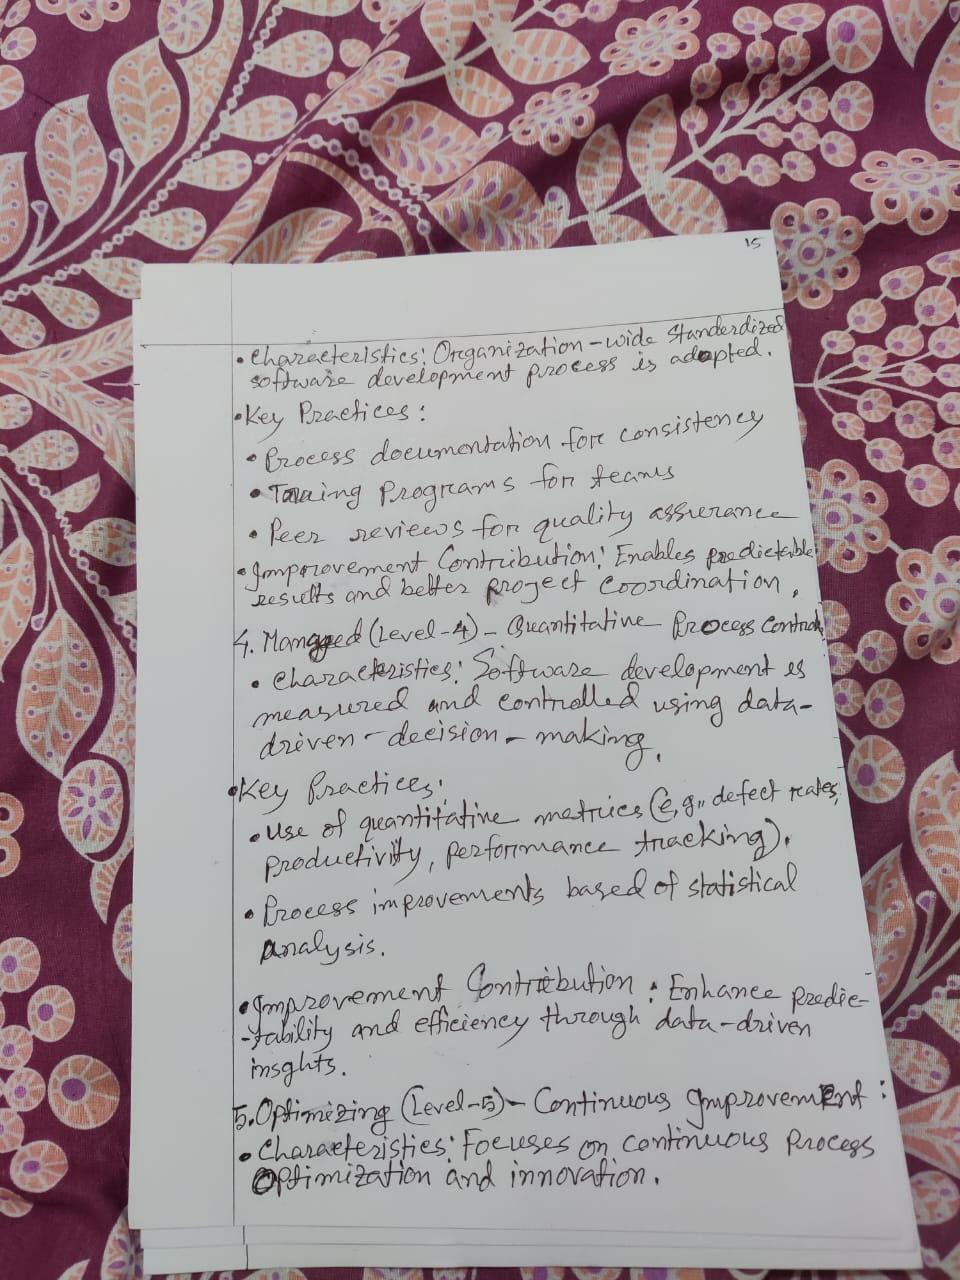 15
• Characteristics: Organization-wide standerdized
software development process is adopted.
• Key Practices:
• Process documentation for consistency
• Traing Programs for teams
• Peer reviews for quality assurance
• Improvement Contribution: Enables predictable
results and better project coordination.
4. Managed (Level-4) - Quantitative Process Control
• Characteristics: Software development is
measured and controlled using data-
driven-decision-making.
• Key Practices:
• Use of quantitative metrics (e,g,, defect rates,
productivity, performance tracking).
• Process improvements based of statistical
analysis.
• Improvement Contribution: Enhance predic-
-tability and efficiency through data-driven
insghts.
5. Optimizing (Level-5) - Continuous Improvement:
• Characteristics: Focuses on continuous process
Optimization and innovation.